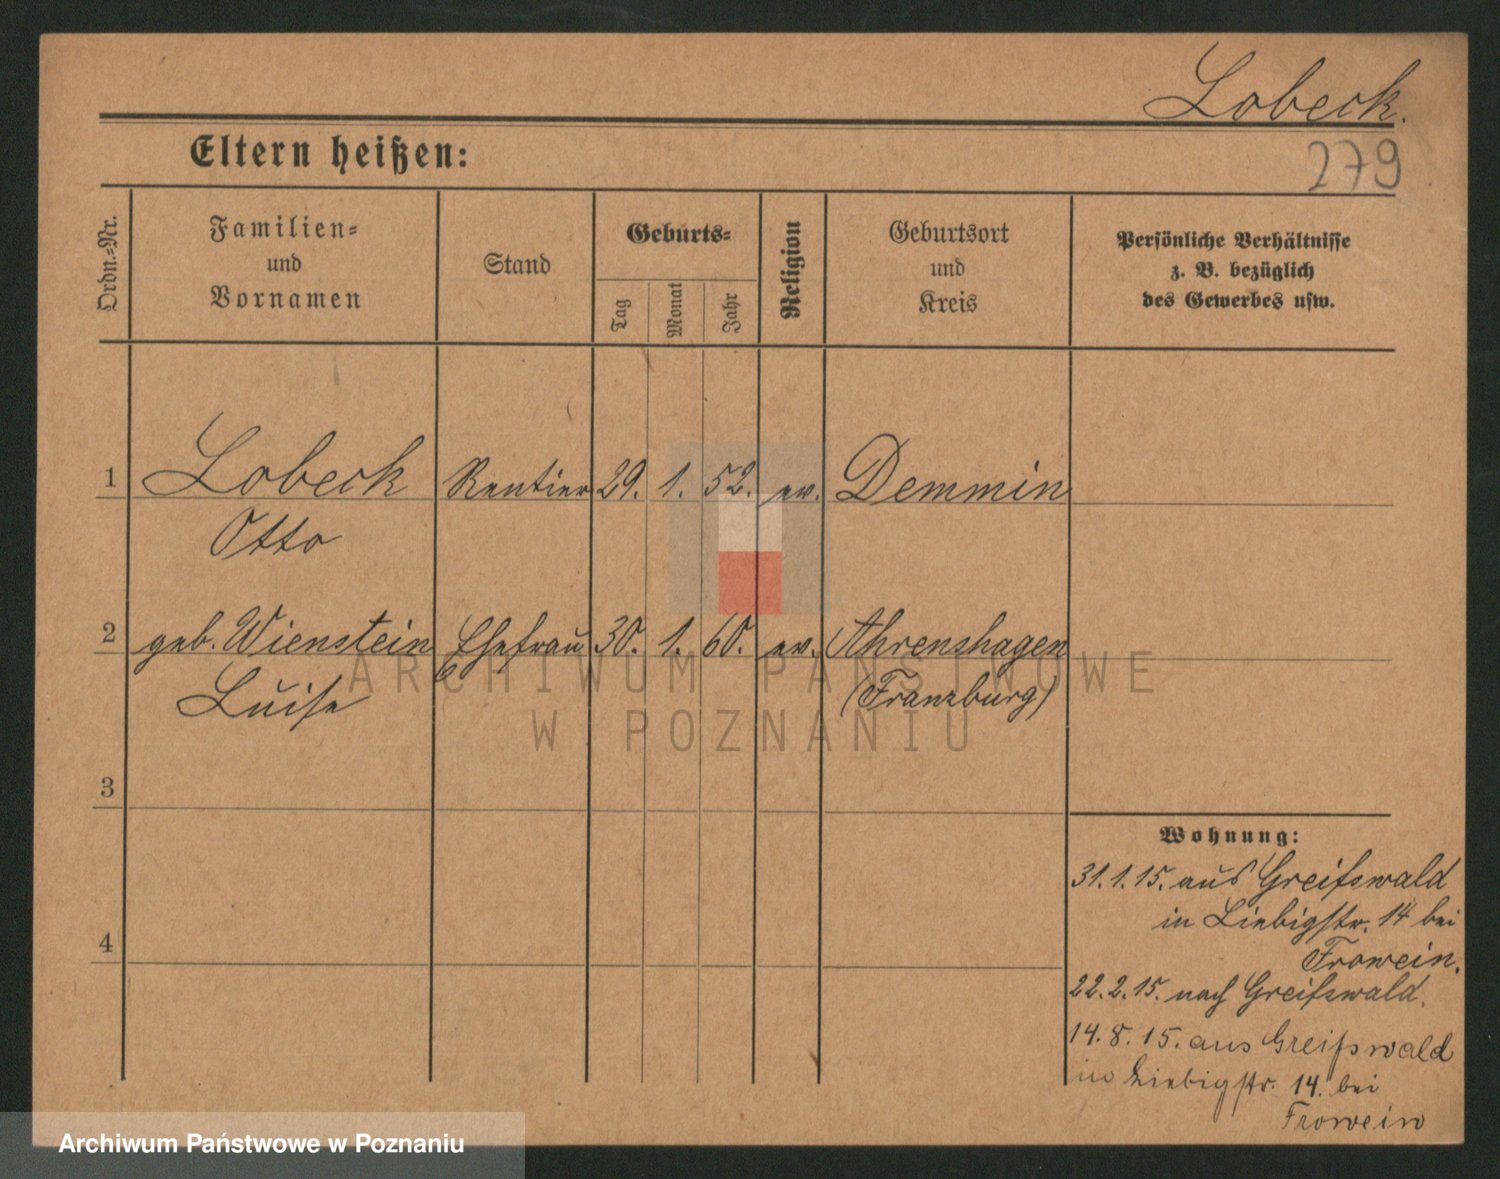 Lobeck.
279
Eltern heißen:
Ordn.-Nr.
Familien-
und
Vornamen
Stand
Geburts-
Tag
Monat
Jahr
Religion
Geburtsort
und
Kreis
Persönliche Verhältnisse
z. B. bezüglich
des Gewerbes usw.
1 Lobeck Rentier 29. 1. 52. ev. Demmin
Otto
2 geb. Wienstein Ehefrau 30. 1. 60. ev. Ahrenshagen
Luise (Franzburg)
ARCHIWUM PAŃSTWOWE
W POZNANIU
3
4
Wohnung:
31.1.15. aus Greifswald
in Liebigstr. 14 bei
Frowein.
22.2.15. nach Greifswald.
14.8.15. aus Greifswald
in Liebigstr. 14. bei
Frowein
Archiwum Państwowe w Poznaniu